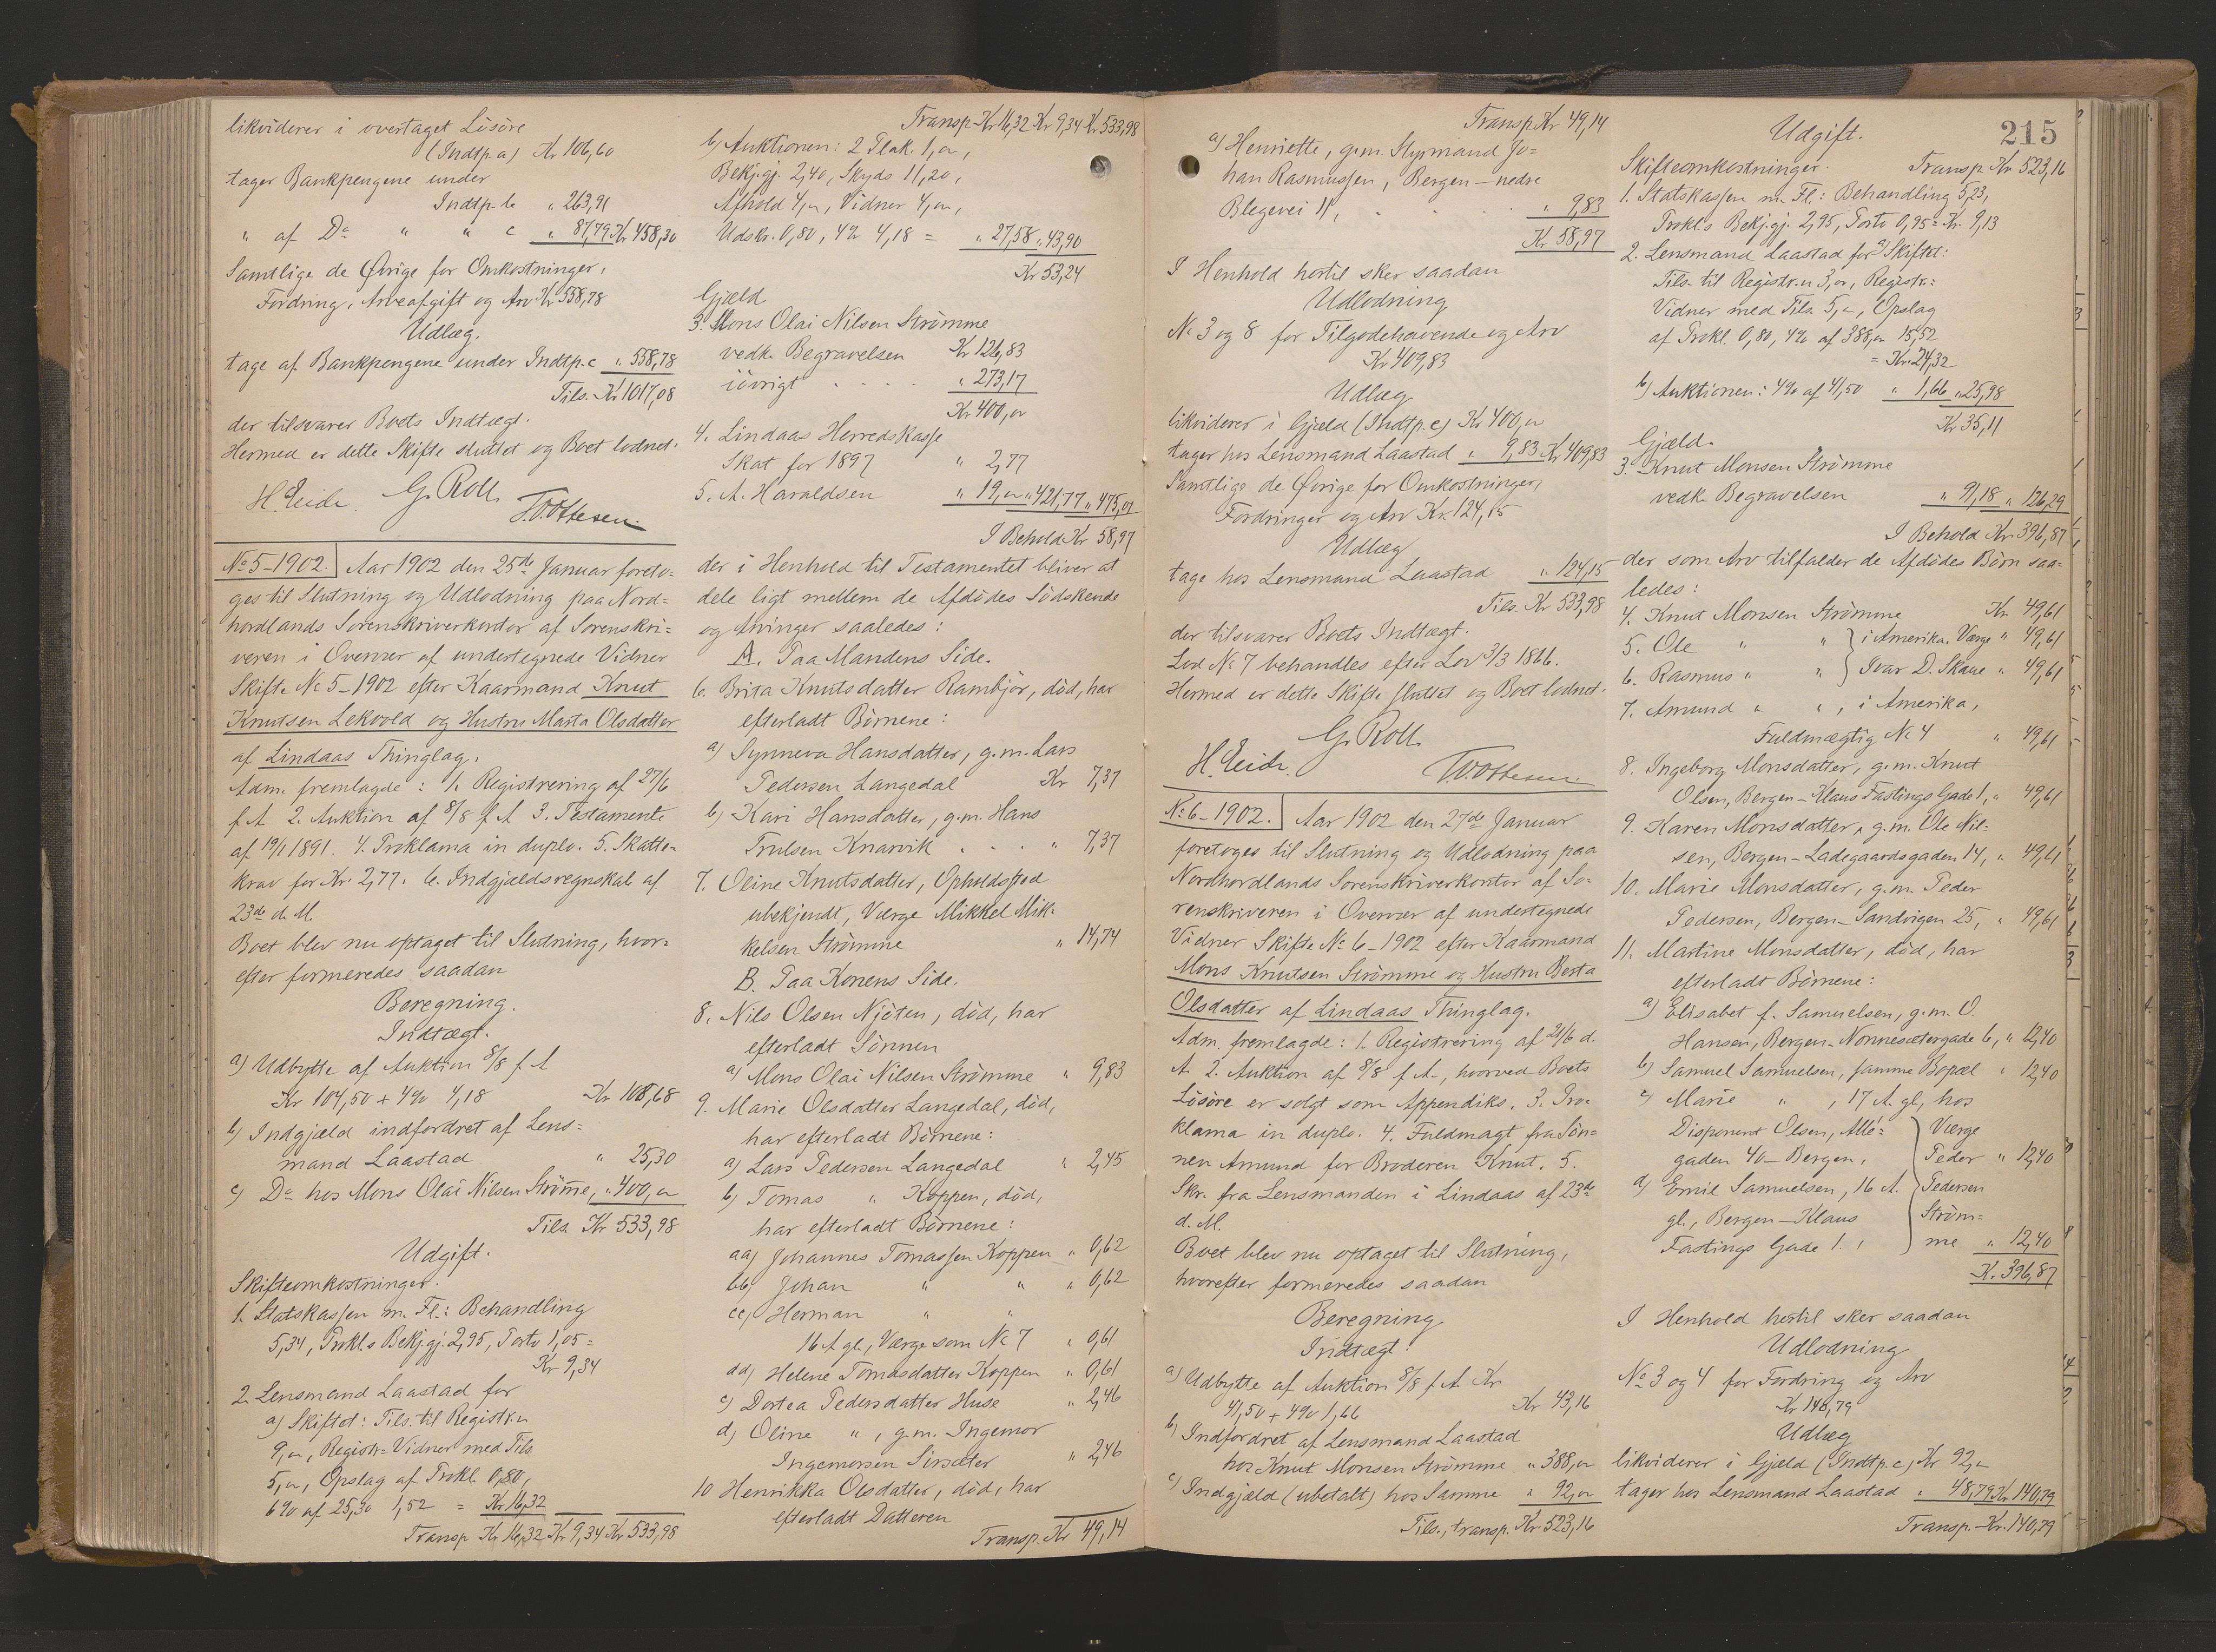 likviderer i overtaget Lösöre
(Indtp. a) Kr 106,60
tager Bankpengene under
Indtp. b " 263,91
" af Do " " c " 87,79 Kr 458,30
Samtlige de Övrige for Omkostninger,
Fordring, Arveafgift og Arv Kr 558,78
Udlæg.
tage af Bankpengene under Indtp. c " 558,78
Tils. Kr 1017,08
der tilsvarer Boets Indtægt.
Hermed er dette Skifte sluttet og Boet lodnet.
H. Eide. G. Roll. T. Ottesen.
No 5-1902. Aar 1902 den 25de Januar foreto=
ges til Slutning og Udlodning paa Nord=
hordlands Sorenskriverkontor af Sorenskri=
veren i Overvær af undertegnede Vidner
Skifte No 5-1902 efter Kaarmand Knut
Knutsen Lekvold og Hustru Marta Olsdatter
af Lindaas Thinglag.
Adm. fremlagde: 1. Registrering af 27/6
f. A 2. Auktion af 8/8 f. A 3. Testamente
af 19/1 1891. 4. Proklama in duplo. 5. Skatte-
krav for Kr. 2,77. 6. Indgjældsregnskab af
23de d. M.
Boet blev nu optaget til Slutning, hvor=
efter formeredes saadan
Beregning.
Indtægt.
a) Udbytte af Auktion 8/8 f A
Kr 104,50 + 4% 4,18 Kr 108,68
b) Indgjæld indfordret af Lens=
mand Laastad " 25,30
c) Do hos Mons Olai Nilsen Strömme, " 400,00
Tils. Kr 533,98
Udgift.
Skifteomkostninger.
1. Statskassen m. Fl.: Behandling
5,34, Prokl.s Bekj.gj. 2,95, Porto 1,05 =
Kr 9,34
2. Lensmand Laastad for
a) Skiftet: Tils. til Registr.n
9,00, Registr=Vidner med Tils
5,00, Opslag af Prokl 0,80,
6% af 25,30 1,52 = Kr 16,32
Transp Kr 16,32 Kr 9,34 Kr 533,98
Transp. Kr 16,32 Kr 9,34 Kr 533,98
b) Auktionen: 2 Plak. 1,00,
Bekj.gj. 2,40, Skyds 11,20,
Afhold 4,00, Vidner 4,00,
Udskr. 0,80, 4% 4,18 = " 27,58 " 43,90
Kr 53,24
Gjæld
3. Mons Olai Nilsen Strömme
vedk. Begravelsen Kr 126,83
iövrigt . . . . " 273,17
Kr 400,00
4. Lindaas Herredskasse
Skat for 1897 " 2,77
5. A. Haraldsen " 19,00 " 421,77 " 475,01
I Behold Kr 58,97
der i Henhold til Testamentet bliver at
dele ligt mellem de Afdödes Södskende
og Arvinger saaledes:
A. Paa Mandens Side.
6. Brita Knutsdatter Rambjör, död, har
efterladt Börnene:
a) Synneva Hansdatter, g.m. Lars
Pedersen Langedal Kr 7,37
b) Kari Hansdatter, g.m. Hans
Trulsen Knarvik . . . " 7,37
7. Oline Knutsdatter, Opholdssted
ubekjendt, Værge Mikkel Mik=
kelsen Strömme " 14,74
B. Paa Konens Side.
8. Nils Olsen Njöten, död, har
efterladt Sönnen
a) Mons Olai Nilsen Strömme " 9,83
9. Marie Olsdatter Langedal, död,
har efterladt Börnene:
a) Lars Pedersen Langedal " 2,45
b) Tomas " Koppen, död,
har efterladt Börnene:
aa) Johannes Tomassen Koppen " 0,62
bb) Johan " " " 0,62
cc) Herman " "
16 A. gl., Værge som No 7 " 0,61
dd) Helene Tomasdatter Koppen " 0,61
c) Dortea Pedersdatter Huse " 2,46
d) Oline " , g.m. Ingemor
Ingemorsen " 2,46
10 Henrikka Olsdatter, död, har
efterladt Datteren
Transp. Kr 49,14
Transp. Kr 49,14
a) Henriette, g.m. Styrmand Jo=
han Rasmussen, Bergen - nedre
Blegevei 11, . . . " 9,83
Kr 58,97
I Henhold hertil sker saadan
Udlodning
No 3 og 8 for Tilgodehavende og Arv
Kr 409,83
Udlæg
likviderer i Gjæld (Indtp. c) Kr 400,00
tager hos Lensmand Laastad " 9,83 Kr 409,83
Samtlige de Övrige for Omkostninger,
Fordringer og Arv Kr. 124,15
Udlæg
tage hos Lensmand Laastad " 124,15
Tils. Kr 533,98
der tilsvarer Boets Indtægt.
Lod No 7 behandles efter Lov 3/3 1866.
Hermed er dette Skifte sluttet og Boet lodnet.
G. Roll.
H. Eide. T. Ottesen.
No 6-1902. Aar 1902 den 27de Januar
foretoges til Slutning og Udlodning paa
Nordhordlands Sorenskriverkontor af So-
renskriveren i Overvær af undertegnede
Vidner Skifte No 6-1902 efter Kaarmand
Mons Knutsen Strömme og Hustru Berta
Olsdatter af Lindaas Thinglag.
Adm. fremlagde: 1. Registrering af 21/6 d.
A 2. Auktion af 8/8 f. A., hvorved Boets
Lösöre er solgt som Appendiks. 3. Pro-
klama in duplo. 4. Fuldmagt fra Sön=
nen Amund for Broderen Knut. 5.
Skr. fra Lensmanden i Lindaas af 23de
d. M.
Boet blev nu optaget til Slutning,
hvorefter formeredes saadan
Beregning
Indtægt.
a) Udbytte af Auktion 8/8 f. A Kr
41,50 + 4% 1,66 Kr 43,16
b) Indfordret af Lensmand Laastad
hos Knut Monsen Strömme " 388,00
c) Indgjæld (ubetalt) hos Samme " 92,00
Tils., transp. Kr 523,16
215
Udgift.
Skifteomkostninger. Transp. Kr 523,16
1. Statskassen m. Fl.: Behandling 5,23,
Prokl.s Bekj.gj. 2,95, Porto 0,95 = Kr. 9,13
2. Lensmand Laastad for a) Skiftet:
Tils. til Registr.n 3,00, Registr.=
Vidner med Tils. 5,00, Opslag
af Prokl. 0,80, 4% af 388,00 15,52
= Kr. 24,32
b) Auktionen: 4% af 41,50 " 1,66 " 25,98
Kr 35,11
Gjæld.
3. Knut Monsen Strömme
vedk. Begravelsen " 91,18 " 126,29
I Behold Kr 396,87
der som Arv tilfalder de Afdödes Börn saa=
ledes:
4. Knut Monsen Strömme Kr 49,61
5. Ole " " } i Amerika, Værge " 49,61
6. Rasmus " " } Ivar D. Skaue " 49,61
7. Amund " " , i Amerika,
Fuldmægtig No 4 " 49,61
8. Ingeborg Monsdatter, g.m. Knut
Olsen, Bergen - Klaus Fastings Gade 1, " 49,61
9. Karen Monsdatter, g.m. Ole Nil=
sen, Bergen - Ladegaardsgaden 14, " 49,61
10. Marie Monsdatter, g.m. Peder
Pedersen, Bergen - Sandvigen 25, " 49,61
11. Martine Monsdatter, död, har
efterladt Börnene:
a) Elisabet f. Samuelsen, g.m. O.
Hansen, Bergen - Nonnesætergade 6, " 12,40
b) Samuel Samuelsen, samme Bopæl " 12,40
c) Marie " , 17 A. gl, hos
Disponent Olsen, Allé= Værge
gaden 40 - Bergen, Peder " 12,40
d) Emil Samuelsen, 16 A. Pedersen
gl., Bergen - Klaus Ström=
Fastings Gade 1. , me " 12,40
Kr. 396,87
I Henhold hertil sker saadan
Udlodning
No 3 og 4 for Fordring og Arv
Kr 140,79
Udlæg
likviderer i Gjæld (Indtp. c) Kr 92,00
tager hos Lensmand Laastad " 48,79 Kr 140,79
Transp. Kr. 140,79